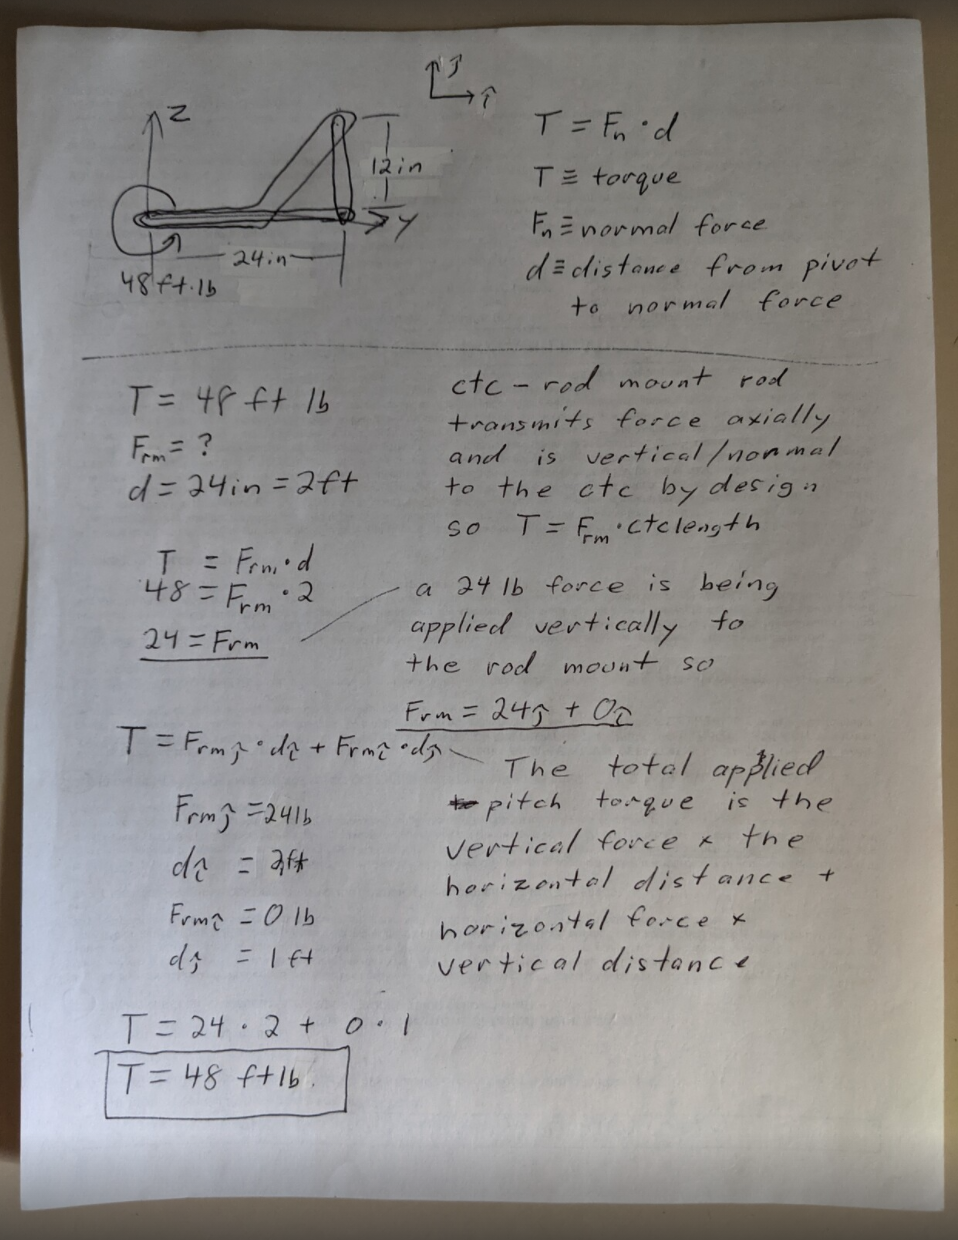 ĵ
î
Z
12in
Y
24in
48 ft·lb
T = Fn · d
T ≡ torque
Fn ≡ normal force
d ≡ distance from pivot
to normal force
T = 48 ft lb
Frm = ?
d = 24in = 2ft
ctc - rod mount rod
transmits force axially
and is vertical/normal
to the ctc by design
so T = Frm · ctc length
T = Frm · d
48 = Frm · 2
24 = Frm
a 24 lb force is being
applied vertically to
the rod mount so
Frm = 24ĵ + 0î
T = Frmĵ · dî + Frmî · dĵ
The total applied
pitch torque is the
vertical force x the
horizontal distance +
horizontal force x
vertical distance
Frmĵ = 24lb
dî = 2ft
Frmî = 0 lb
dĵ = 1 ft
T = 24 · 2 + 0 · 1
T = 48 ft lb.